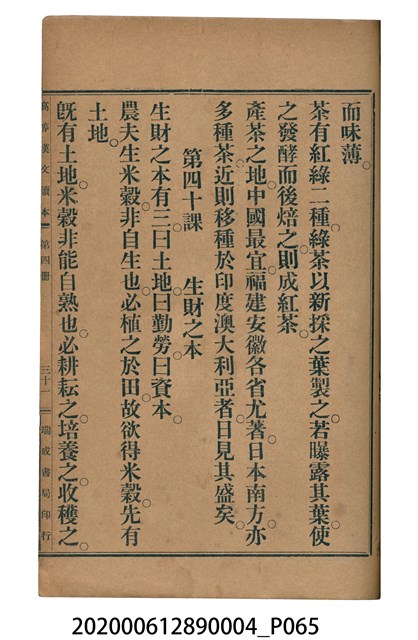 而味薄。
茶有紅綠二種。綠茶以新採之葉製之。若曝露其葉。使
之發酵而後焙之。則成紅茶。
產茶之地。中國最宜。福建安徽各省尤著。日本南方亦
多種茶。近則移種於印度澳大利亞者。日見其盛矣。
第四十課　生財之本
生財之本有三。曰土地。曰勤勞。曰資本。
農夫生米穀。非自生也。必植之於田。故欲得米穀。先有
土地。
既有土地。米穀非能自熟也。必耕耘之。培養之。收穫之。
高等漢文讀本　第四冊　三十一　瑞成書局印行
202000612890004_P065